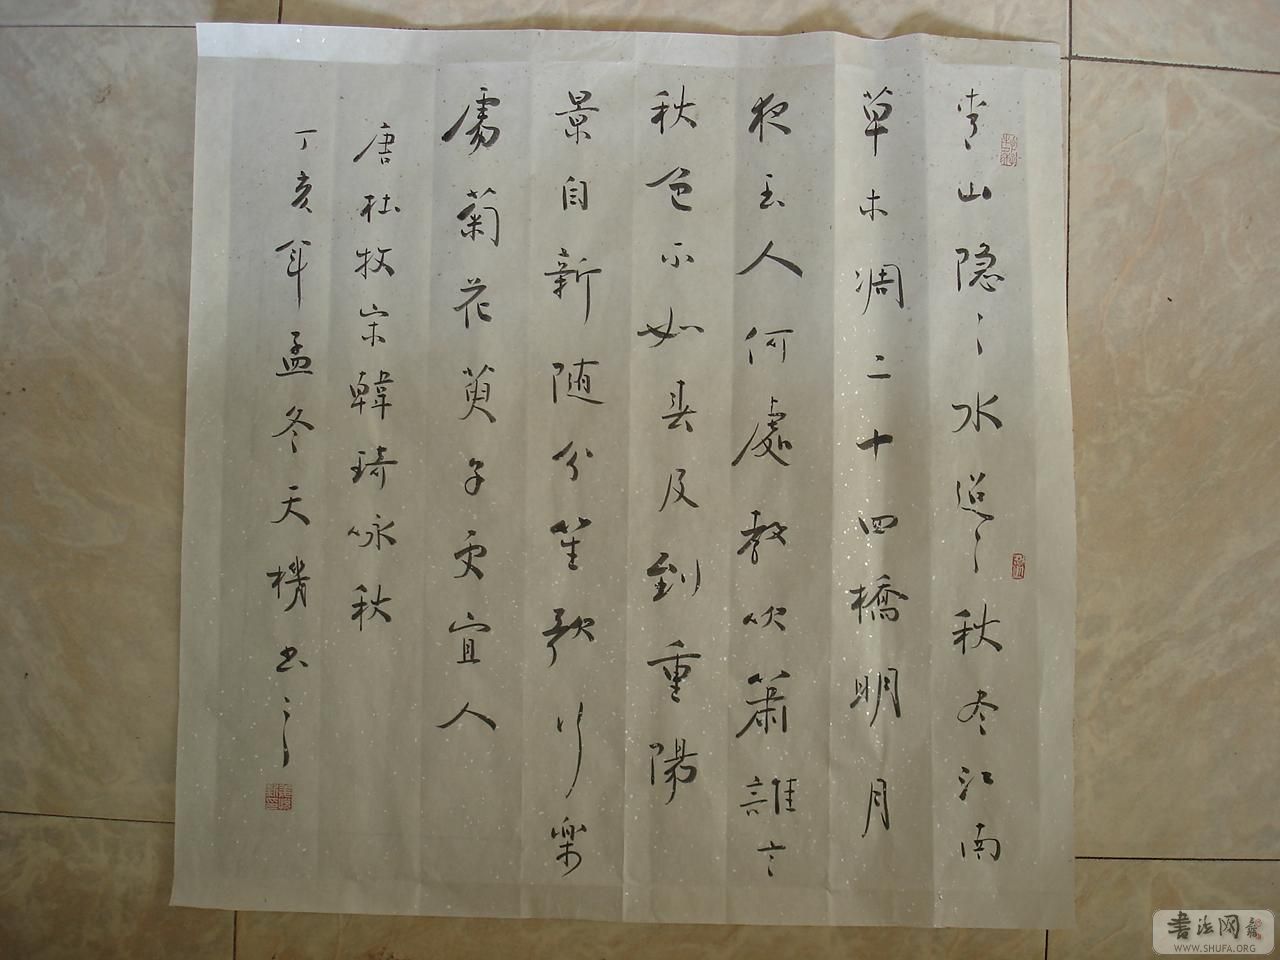 青山隐〻水迢〻秋尽江南
草木凋二十四橋明月
夜玉人何處教吹簫誰言
秋色不如春及到重陽
景自新随分笙歌行樂
處菊花萸子更宜人
唐杜牧宋韓琦咏秋
丁亥年孟冬天機书之
书法网
WWW.SHUFA.ORG